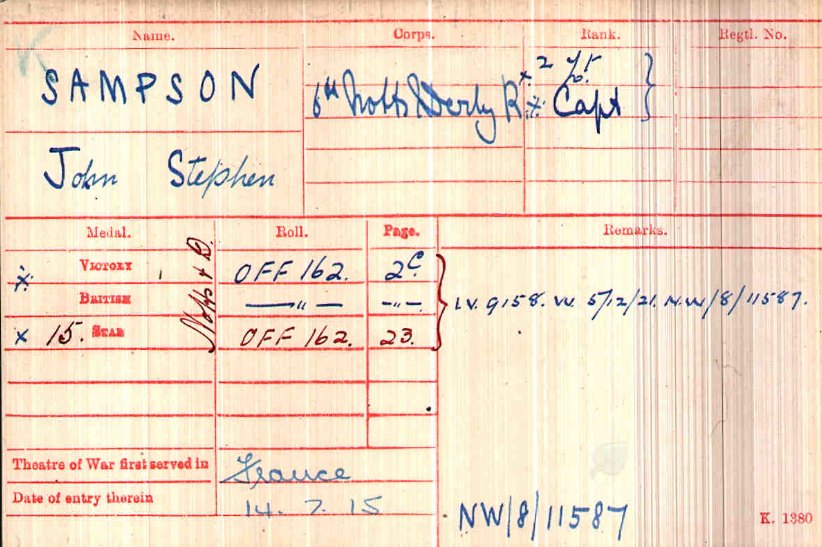 Name. Corps. Rank. Regtl. No.
SAMPSON 6th Notts & Derby R x 2/Lt
x Capt
John Stephen
Medal. Roll. Page. Remarks.
x VICTORY OFF 162. 2C.
BRITISH —"— —"— I.V. 9158. VV. 5/12/21. N.W/8/11587.
x 15. STAR OFF 162. 23.
Notts & D.
Theatre of War first served in France
Date of entry therein 14. 7. 15
NW/8/11587
K. 1380